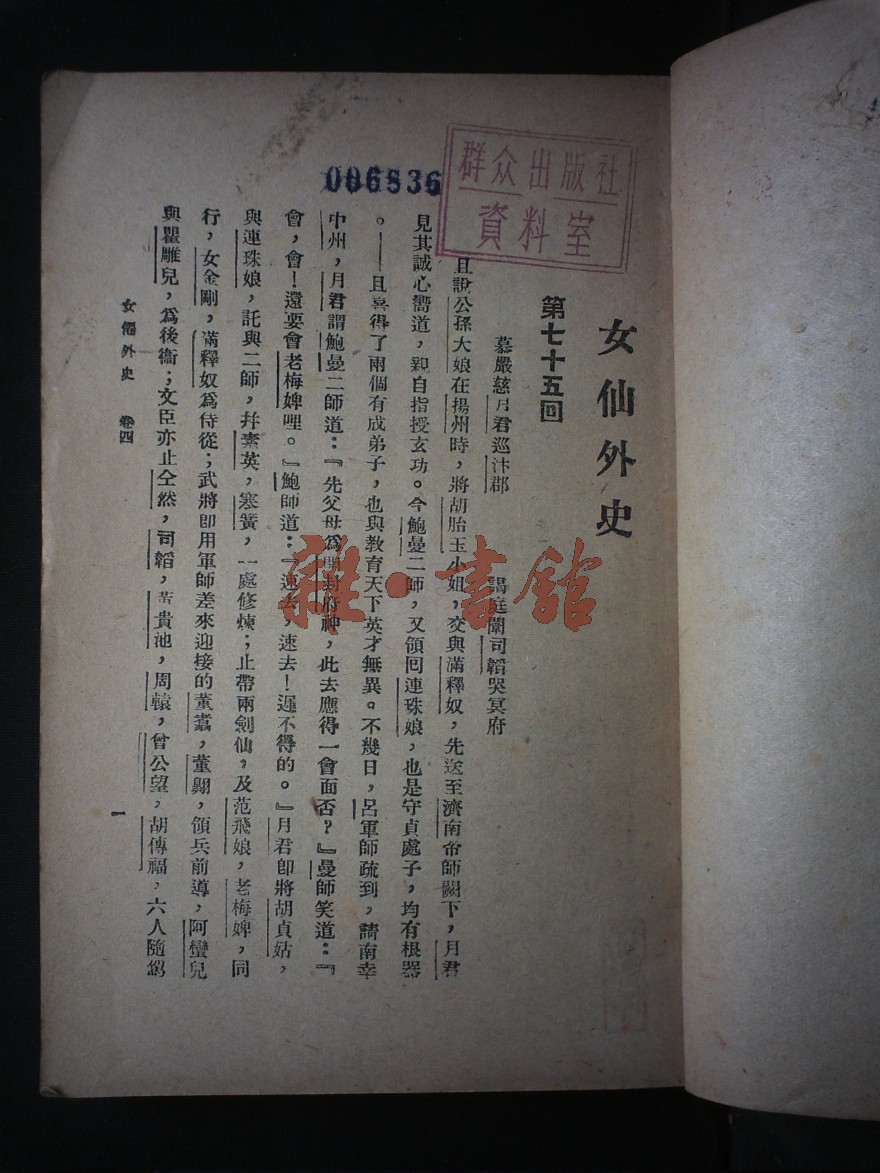 群众出版社
資料室
006836
女仙外史
第七十五回
慕嚴慈月君巡汴郡　謁庭闈司韜哭冥府
且說公孫大娘在揚州時，將胡胎玉小姐，交與滿釋奴，先送至濟南帝師闕下，月君
見其誠心嚮道，親自指授玄功。今鮑曼二師，又領回連珠娘，也是守貞處子，均有根器
。——且喜得了兩個有成弟子，也與教育天下英才無異。不幾日，呂軍師疏到，請南幸
中州，月君謂鮑曼二師道：『先父母爲開封府神，此去應得一會面否？』曼師笑道：『
會，會！還要會老梅婢哩。』鮑師道：『速去，速去！遲不得的。』月君卽將胡貞姑，
與連珠娘，託與二師，幷素英，寒簧，一處修煉；止帶兩劍仙，及范飛娘，老梅婢，同
行，女金剛，滿釋奴爲侍從；武將卽用軍師差來迎接的董翥，董翱，領兵前導，阿蠻兒
與瞿雕兒，爲後衞；文臣亦止仝然，司韜，黃貴池，周轅，曾公望，胡傳福，六人隨鸞
女僊外史　卷四
一
雜·書館